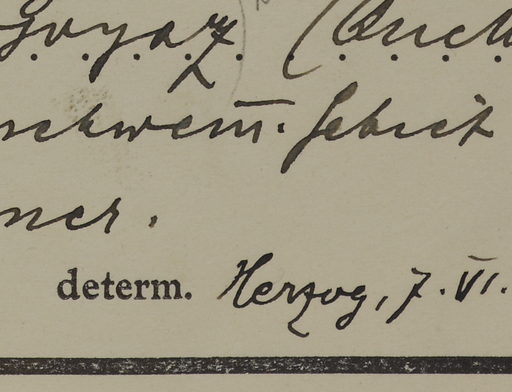 Goyaz. (Quell
schwem̄. Gebiet
ner.
determ. Herzog, 7. VI.